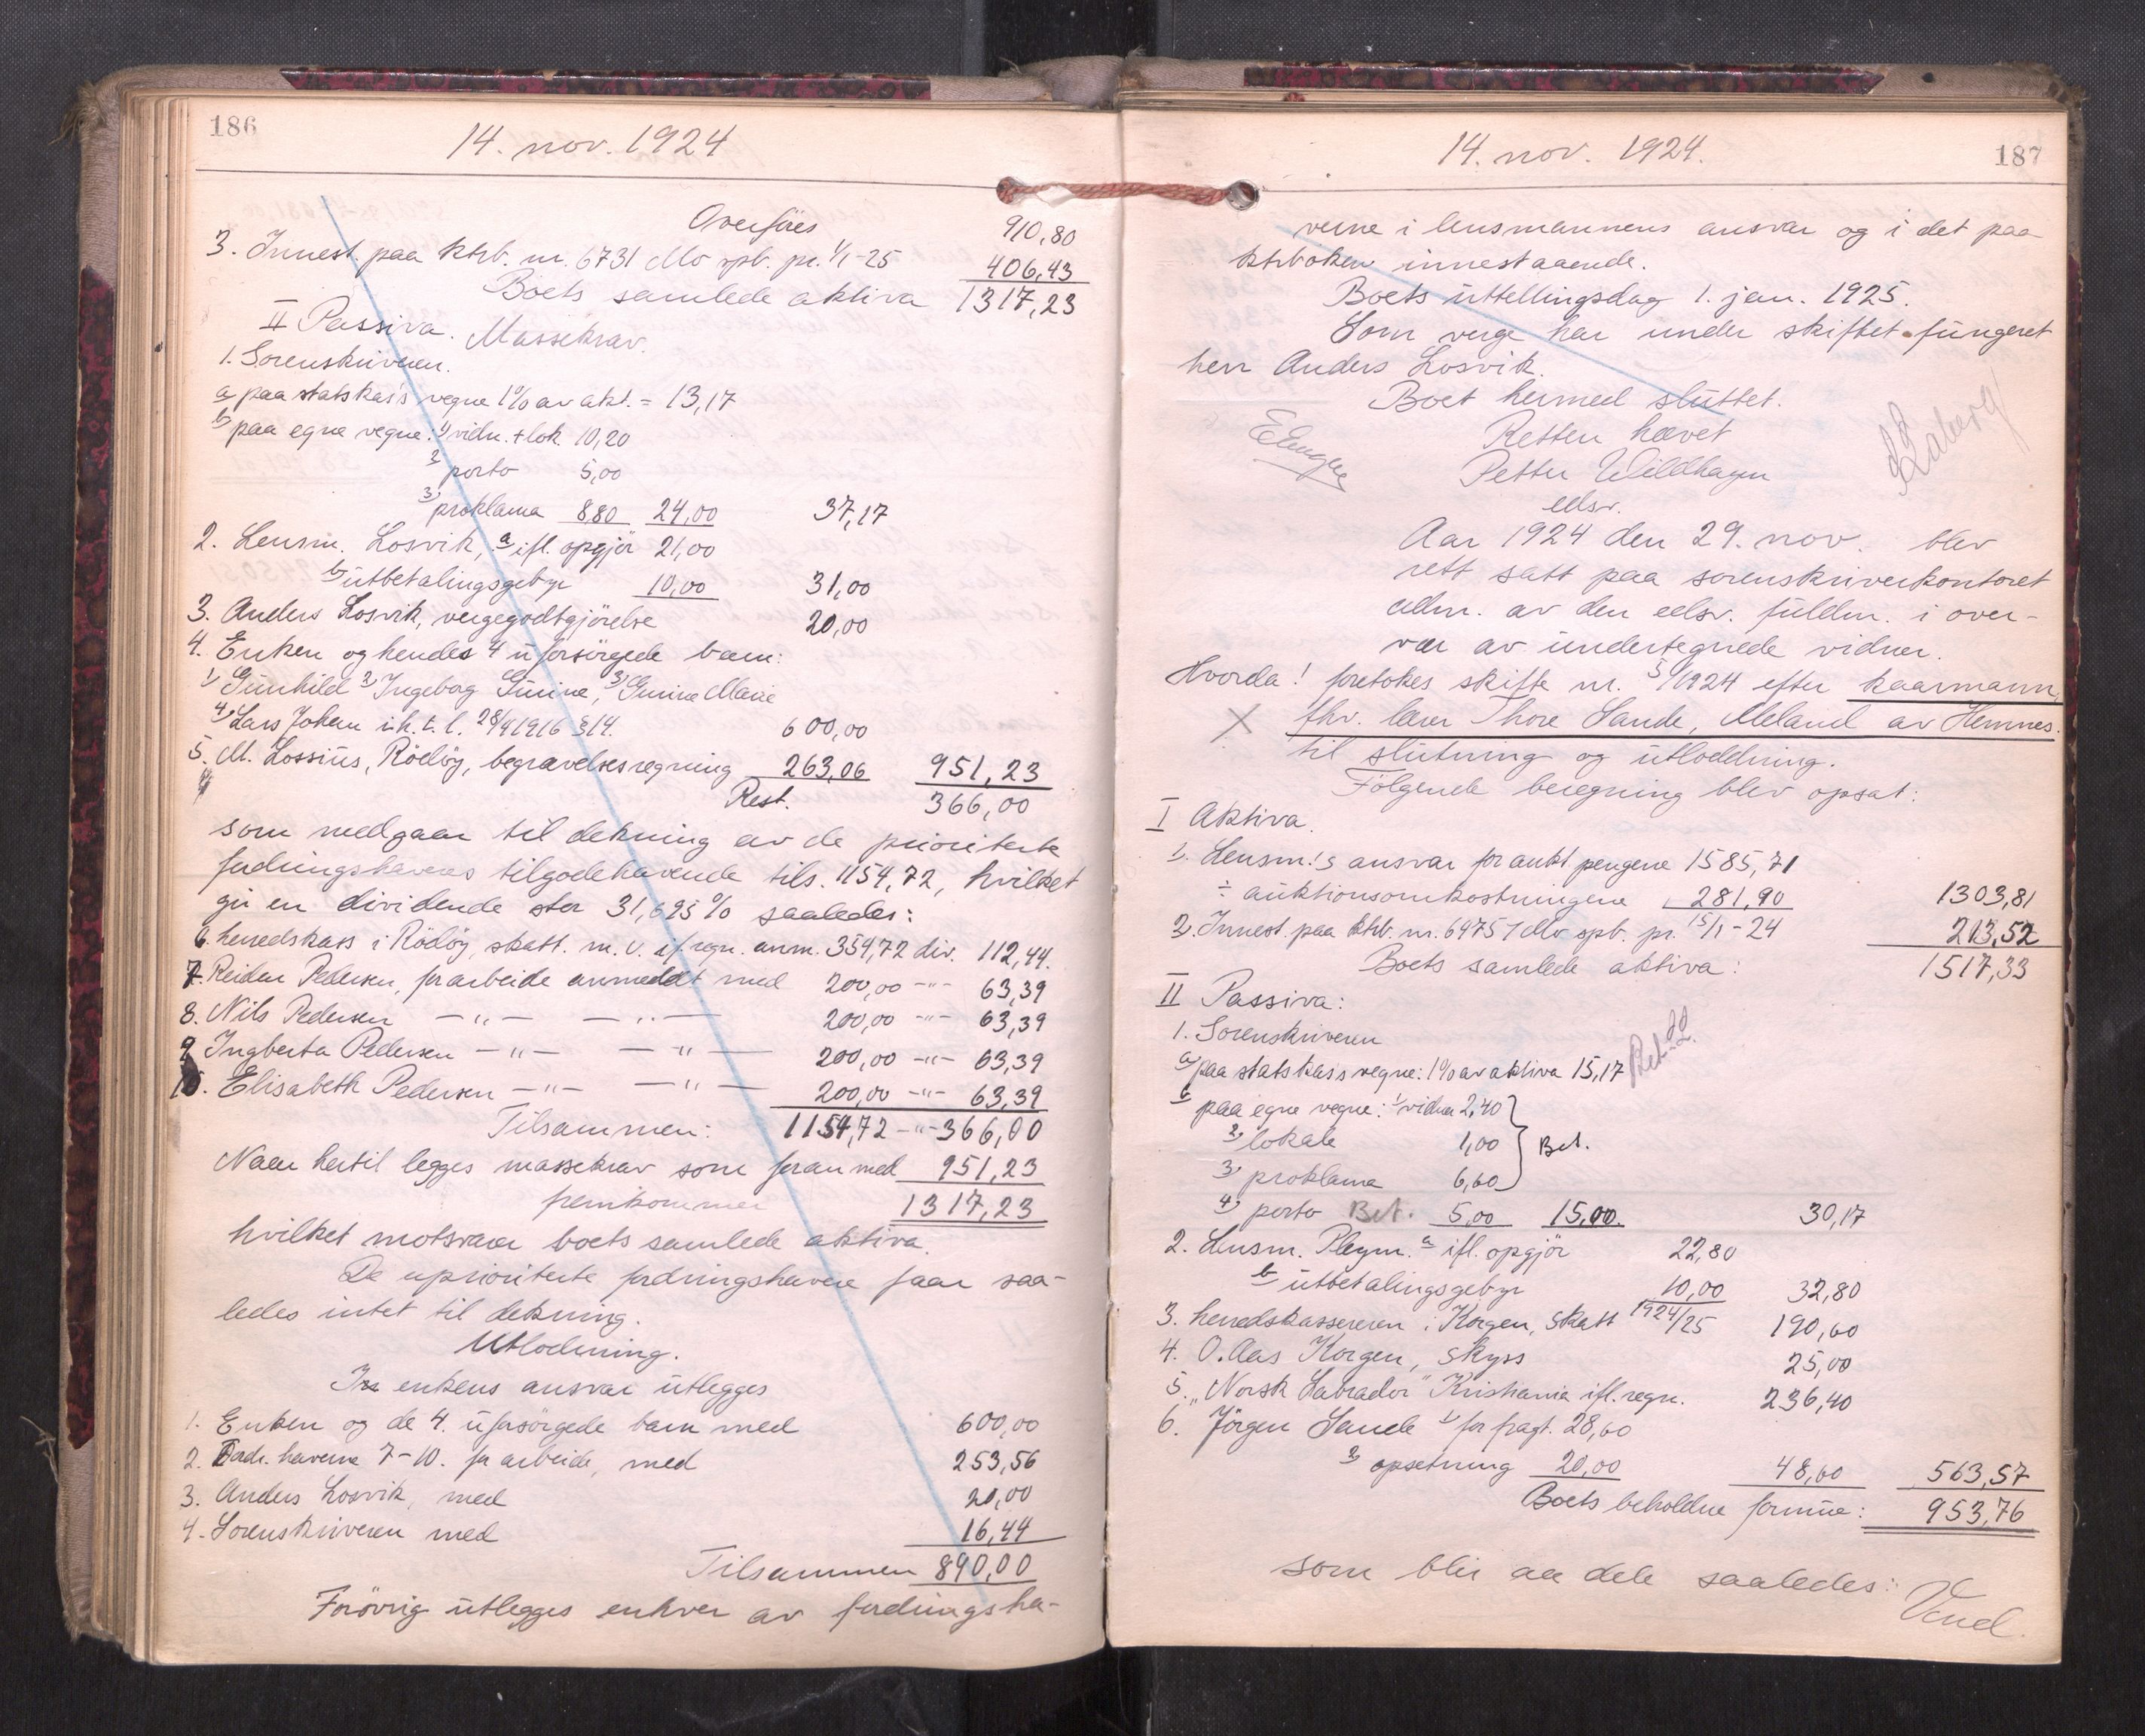 186
14. nov. 1924
Overføres 910,80
3. Innest. paa ktrb. nr. 6731 Mo spb. pr. 1/1-25 406,43
Boets samlede aktiva 1317,23
II Passiva. Massekrav.
1. Sorenskriveren.
a paa statskas's vegne 1% av akt. = 13,17
b paa egne vegne: 1) vidn. + lok. 10,20
2 porto 5,00
3) proklama 880 24,00 37,17
2. Lensm. Losvik, a ifl. opgjör 21,00
b utbetalingsgebyr 10,00 31,00
3. Anders Losvik, vergegodtgjörelse 20,00
4. Enken og hendes 4 uforsörgede barn:
1) Gunhild 2) Ingeborg Gurine, 3) Gurine Marie
4) Lars Johan i.h.t. l. 28/4 1916 §14. 600,00
5. M. Lossius, Rödöy, begravelsesregning 263,06 951,23
Rest. 366,00
som medgaar til dekning av de prioriterte
fordringshaveres tilgodehavende tils. 1154,72, hvilket
gir en dividende stor 31,695% saaledes:
6. herredskass i Rödöy, skatt. m.v. if. regn. anm. 354,72 div. 112,44.
7. Reidar Pedersen, for arbeide anmeldt med 200,00 -"- 63,39
8. Nils Pedersen -"- -"- 200,00 -"- 63,39
9 Ingberta Pedersen -"- -"- 200,00 -"- 63,39
10. Elisabeth Pedersen -"- -"- 200,00 -"- 63,39
Tilsammen: 1154,72 -"- 366,00
Naar hertil legges massekrav som foran med 951,23
fremkommer 1317,23
hvilket motsvarer boets samlede aktiva.
De uprioriterte fordringshavere faar saa-
ledes intet til dekning.
Utlodning.
I enkens ansvar utlegges
1. Enken og de 4. uforsörgede barn med 600,00
2. Fordr. haverne 7-10. for arbeide, med 253,56
3. Anders Losvik, med 20,00
4. Sorenskriveren med 16,44
Tilsammen 890,00
Forövrig utlegges enhver av fordringsha-
14. nov. 1924.
187
verne i lensmannens ansvar og i det paa
ktrboken innestaaende.
Boets uttellingsdag 1. jan. 1925.
Som verge har under skiftet fungeret
herr Anders Losvik.
Boet hermed sluttet.
Retten hævet
Petter Wildhagen
edsv.
Aar 1924 den 29. nov. blev
rett satt paa sorenskriverkontoret
adm. av den edsv. fuldm. i over-
vær av undertegnede vidner.
Hvorda! foretokes skifte nr. 5/1924 efter kaarmann,
fhv. lærer Thore Sande, Meland av Hemnes.
til slutning og utloddning.
Følgende beregning blev opsat:
I Aktiva.
1. Lensm!s ansvar for aukt pengene 1585,71
÷ auktionsomkostningene 281,90 1303,81
2. Innest. paa ktrb. nr. 6975 i Mo spb. pr. 15/1-24 213,52
Boets samlede aktiva: 1517,33
II Passiva:
1. Sorenskriveren
a) paa statskas's vegne: 1% av aktiva 15,17
b paa egne vegne: 1) vidner 2,40
2) lokale 1,00 Bet.
3) proklama 6,60
4) porto Bet. 5,00 15,00. 30,17
2. Lensm. Pleym. a ifl. opgjör 22,80
b utbetalingsgebyr 10,00 32,80
3. herredskassereren i Korgen, skatt 1924/25 190,60
4. O. Aas Korgen, skyss 25,00
5. "Norsk Labrador" Kristiania ifl. regn. 236,40
6. Jörgen Sande 1) for fragt. 28,60
2) opsetning 20,00 48,60 563,57
Boets beholdne formue: 953,76
som blir aa dele saaledes:
Vend.